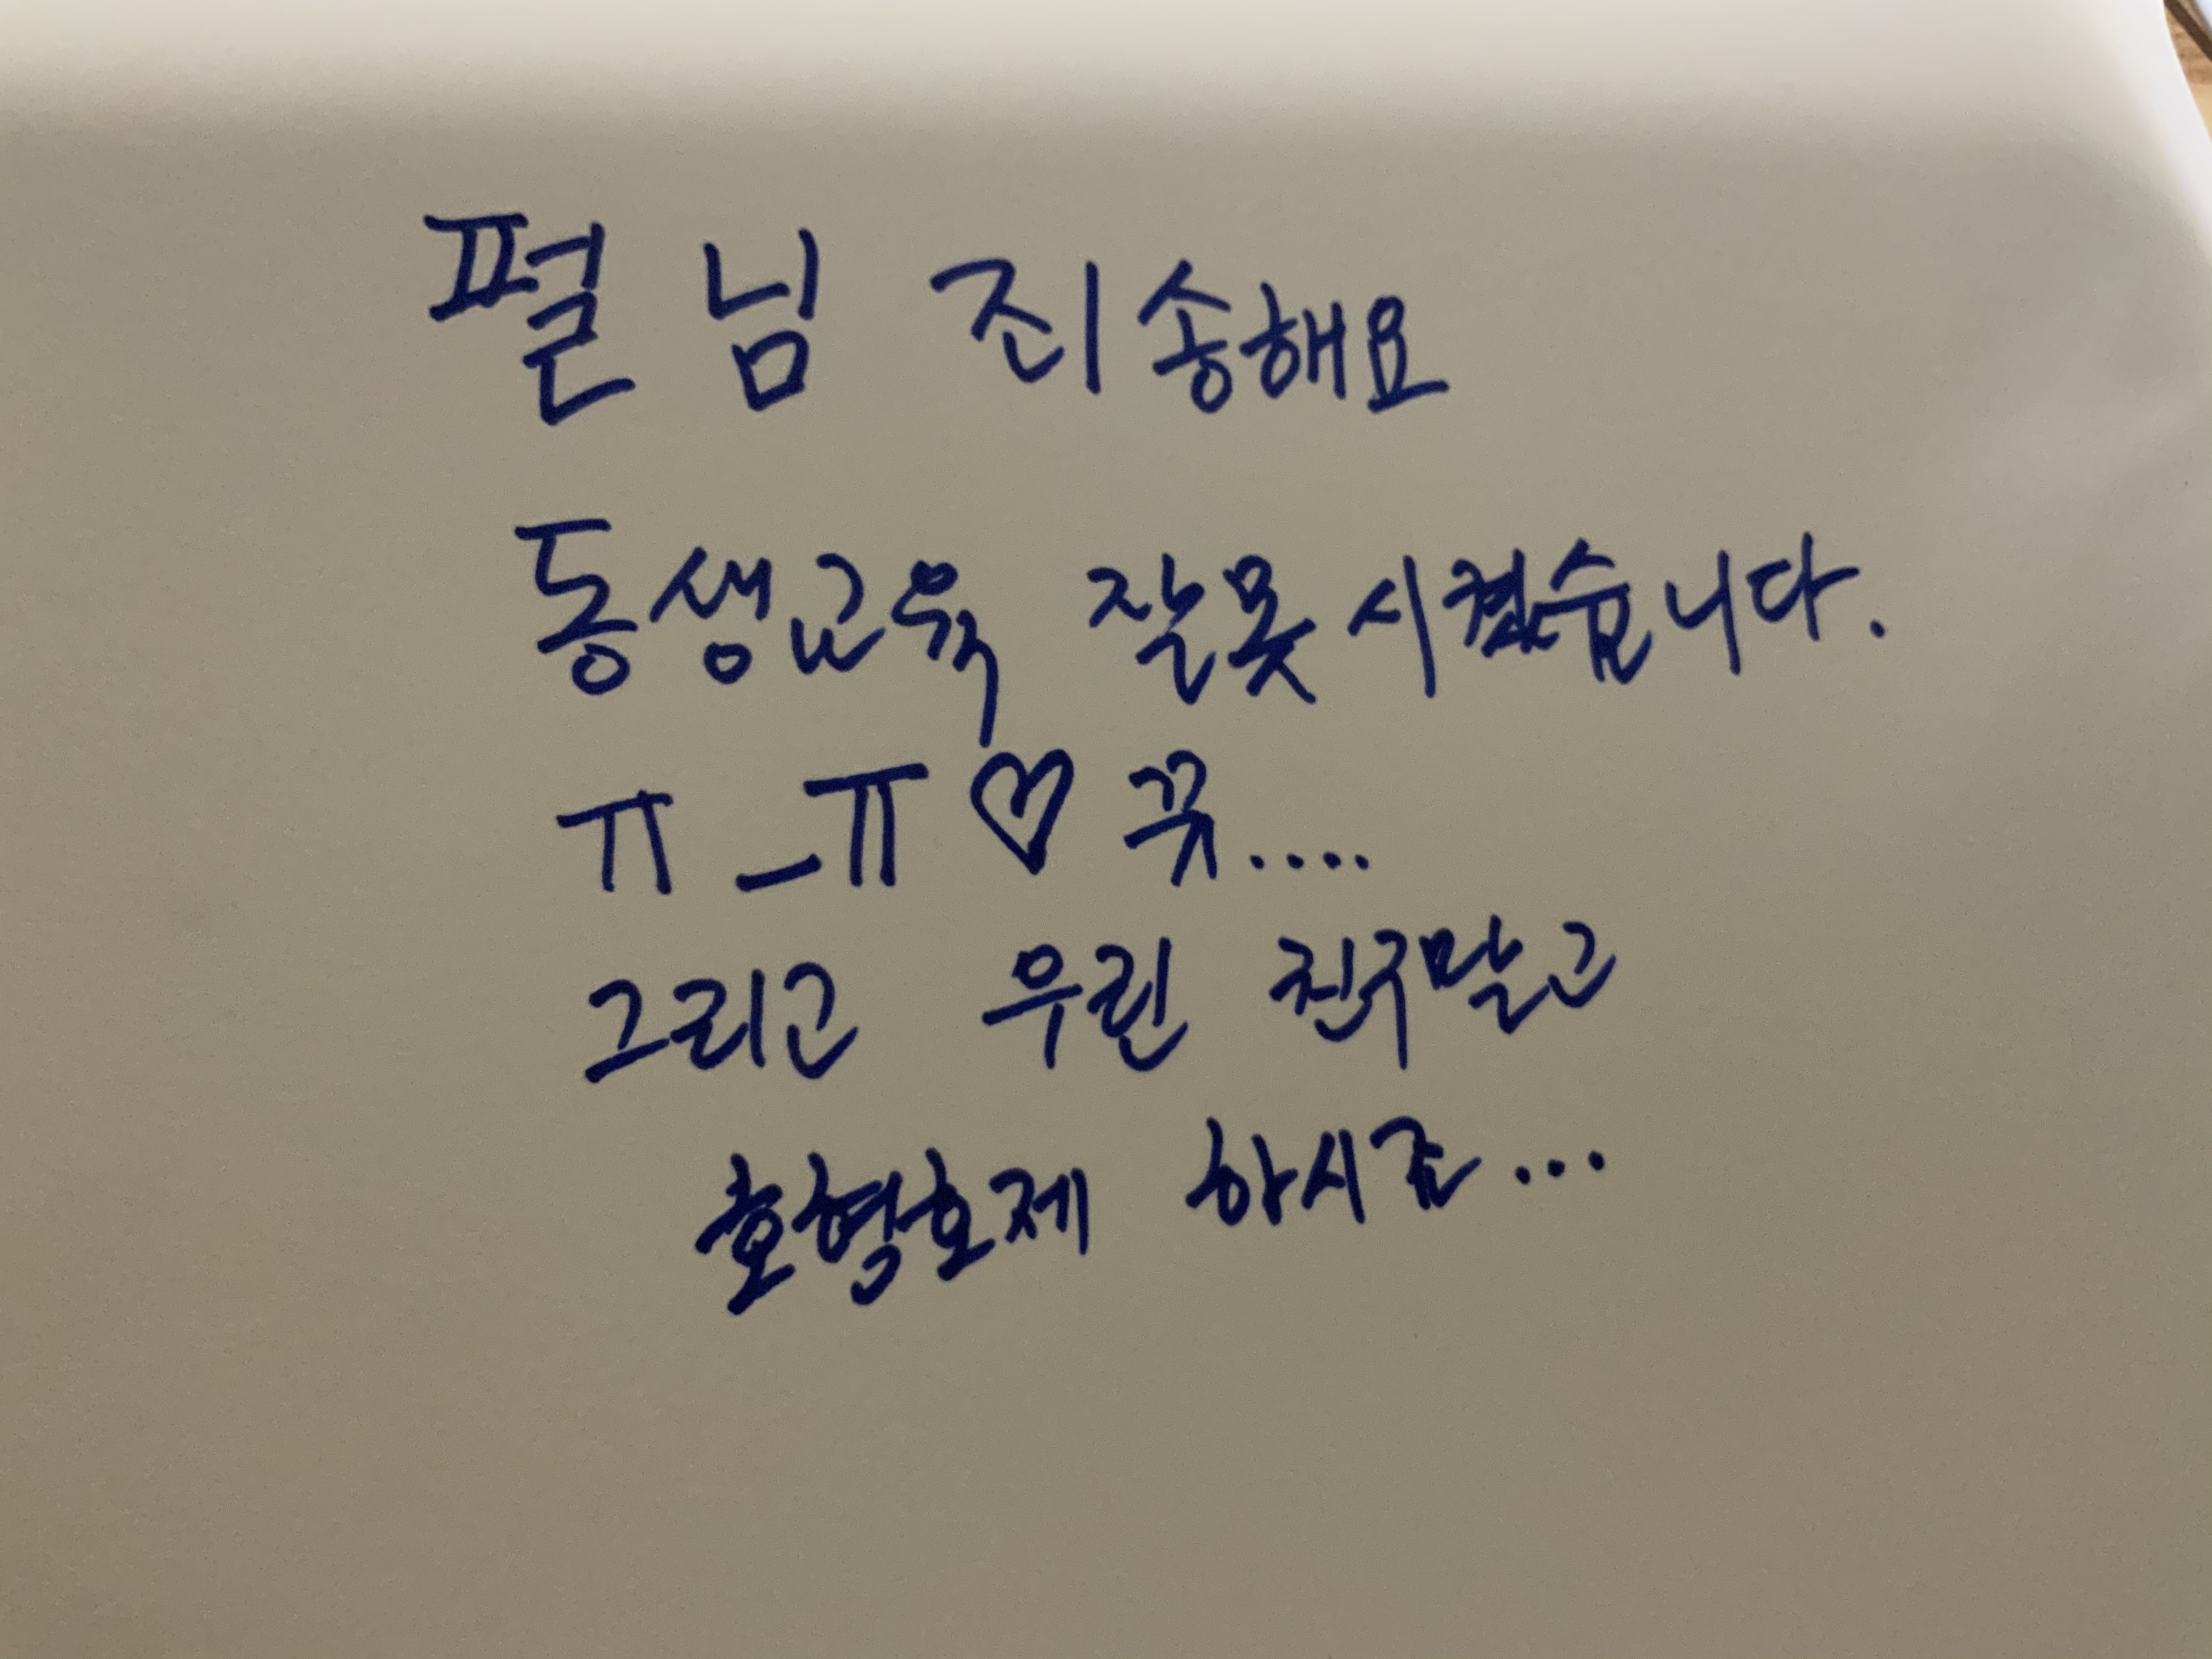 펄 님 죄송해요
동생교육 잘못시켰습니다.
ㅠ_ㅠ♡ 꾹....
그리고 우린 친구말고
호형호제 하시죠...